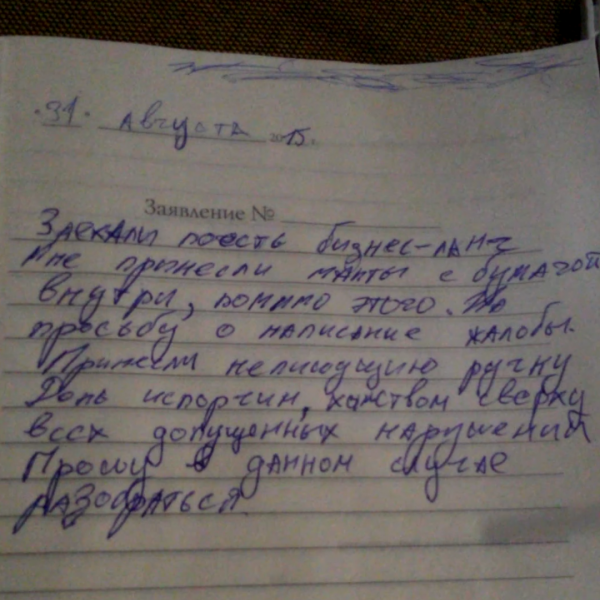 31. августа 2015.
Заявление №
Заехали поесть бизнес-ланч
Мне принесли манты с бумагой
внутри, помимо этого. На
просьбу о написание жалобы.
Принесли непишущию ручку
День испорчин, хамством сверху
всех допущенных нарушений
Прошу в данном случае
разобраться